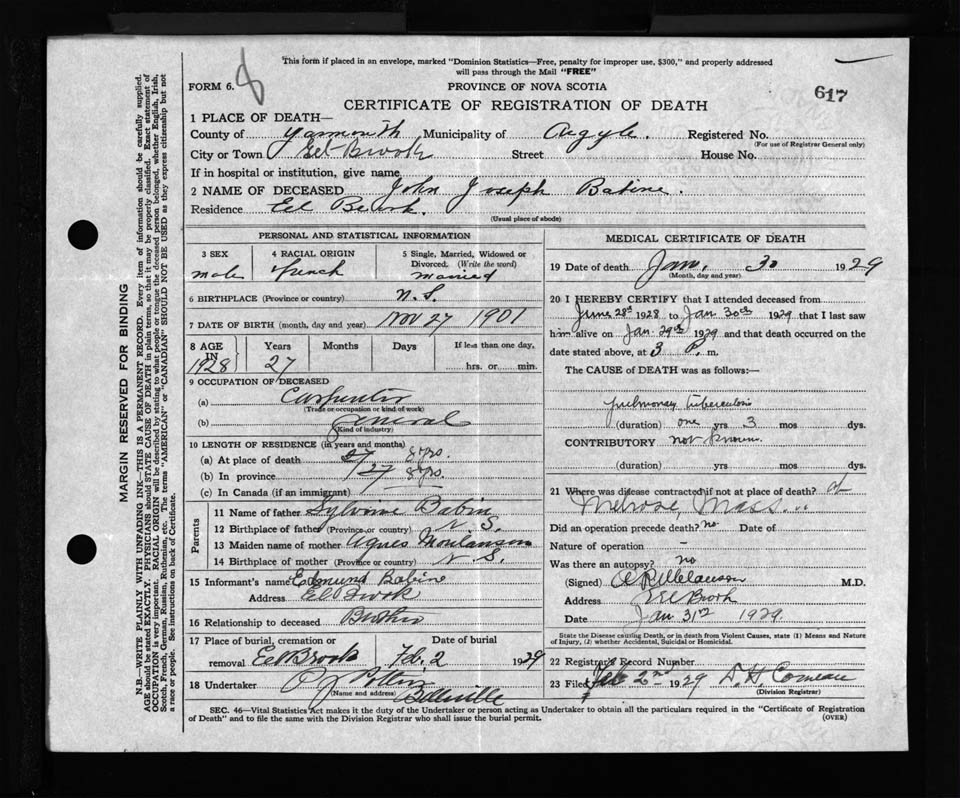 This form if placed in an envelope, marked "Dominion Statistics—Free, penalty for improper use, $300," and properly addressed
will pass through the Mail "FREE"
FORM 6. 8
PROVINCE OF NOVA SCOTIA
617
CERTIFICATE OF REGISTRATION OF DEATH
1 PLACE OF DEATH—
County of Yarmouth Municipality of Argyle. Registered No.
(For use of Registrar General only)
City or Town Eel Brook Street House No.
If in hospital or institution, give name
2 NAME OF DECEASED John Joseph Babine.
Residence Eel Brook.
(Usual place of abode)
PERSONAL AND STATISTICAL INFORMATION
3 SEX 4 RACIAL ORIGIN 5 Single, Married, Widowed or
Divorced. (Write the word)
male french married
6 BIRTHPLACE (Province or country) N.S.
7 DATE OF BIRTH (month, day and year) Nov 27 1901
8 AGE IN 1928 Years Months Days If less than one day,
27 hrs. or min.
9 OCCUPATION OF DECEASED
(a) Carpenter
(Trade or occupation or kind of work)
(b) General
(Kind of industry)
10 LENGTH OF RESIDENCE (in years and months)
(a) At place of death 27 yrs.
(b) In province 27 yrs.
(c) In Canada (if an immigrant)
Parents
11 Name of father Sylvine Babin
12 Birthplace of father (Province or country) N S.
13 Maiden name of mother Agnes Moulanson
14 Birthplace of mother (Province or country) N S.
15 Informant's name Edmund Babine
Address Eel Brook
16 Relationship to deceased Brother
17 Place of burial, cremation or Date of burial
removal Eel Brook Feb. 2 1929
18 Undertaker P J Pottier
(Name and address) Belleville
MEDICAL CERTIFICATE OF DEATH
19 Date of death Jan. 30 1929
(Month, day and year)
20 I HEREBY CERTIFY that I attended deceased from
June 28th 1928 to Jan 30th 1929 that I last saw
him alive on Jan 29th 1929 and that death occurred on the
date stated above, at 3 P. m.
The CAUSE of DEATH was as follows:—
pulmonary tuberculosis
(duration) one yrs 3 mos dys.
CONTRIBUTORY not known.
(duration) yrs mos dys.
21 Where was disease contracted if not at place of death? at
Melrose, Mass.
Did an operation precede death? no Date of
Nature of operation –
Was there an autopsy? no
(Signed) M.D.
Address Eel Brook
Date Jan 31st 1929.
State the Disease causing Death, or in death from Violent Causes, state (1) Means and Nature
of Injury, (2) whether Accidental, Suicidal or Homicidal.
22 Registrar's Record Number
23 Filed Feb 2nd 1929 D. H. Comeau
(Division Registrar)
SEC. 46—Vital Statistics Act makes it the duty of the Undertaker or person acting as Undertaker to obtain all the particulars required in the "Certificate of Registration
of Death" and to file the same with the Division Registrar who shall issue the burial permit.
(OVER)
MARGIN RESERVED FOR BINDING
N.B.—WRITE PLAINLY WITH UNFADING INK—THIS IS A PERMANENT RECORD. Every item of information should be carefully supplied.
AGE should be stated EXACTLY. PHYSICIANS should STATE CAUSE OF DEATH in plain terms, so that it may be properly classified. Exact statement of
OCCUPATION is very important. RACIAL ORIGIN will be described by stating to what people or tongue the deceased person belonged, whether English, Irish,
Scotch, French, German, Russian, Ruthenian, etc. The terms "AMERICAN" or "CANADIAN" SHOULD NOT BE USED as they express citizenship but not
a race or people. See instructions on back of Certificate.